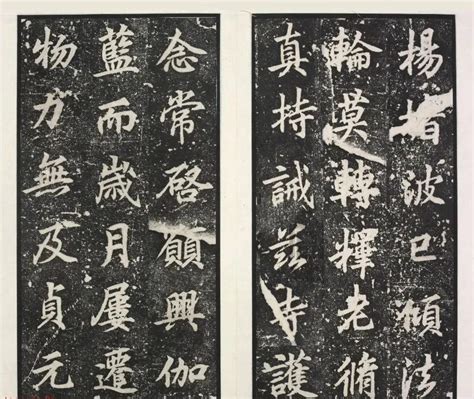 楊堵波已傾法
輪莫轉老脩
真持誡茲寺護
念常啓願興伽
藍而歲月屢遷
物力無及貞元